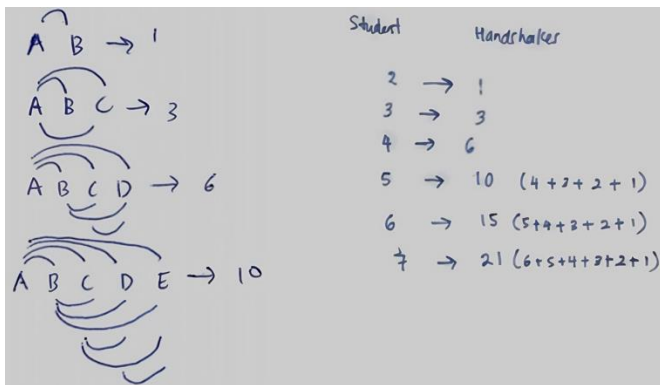 A B → 1
A B C → 3
A B C D → 6
A B C D E → 10
Student Handshakes
2 → 1
3 → 3
4 → 6
5 → 10 (4+3+2+1)
6 → 15 (5+4+3+2+1)
7 → 21 (6+5+4+3+2+1)